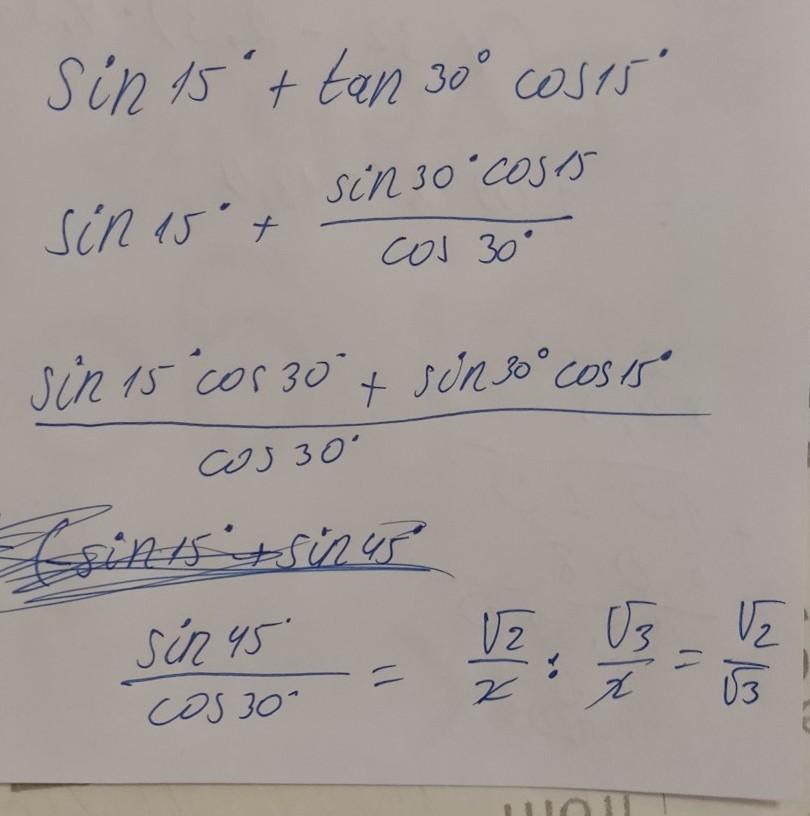 sin 15° + tan 30° cos15°
sin 15° + sin30° cos15 / cos 30°
sin 15° cos 30° + sin30° cos15° / cos 30°
(sin15° + sin 45°
sin 45° / cos 30° = √2/2 : √3/2 = √2/√3